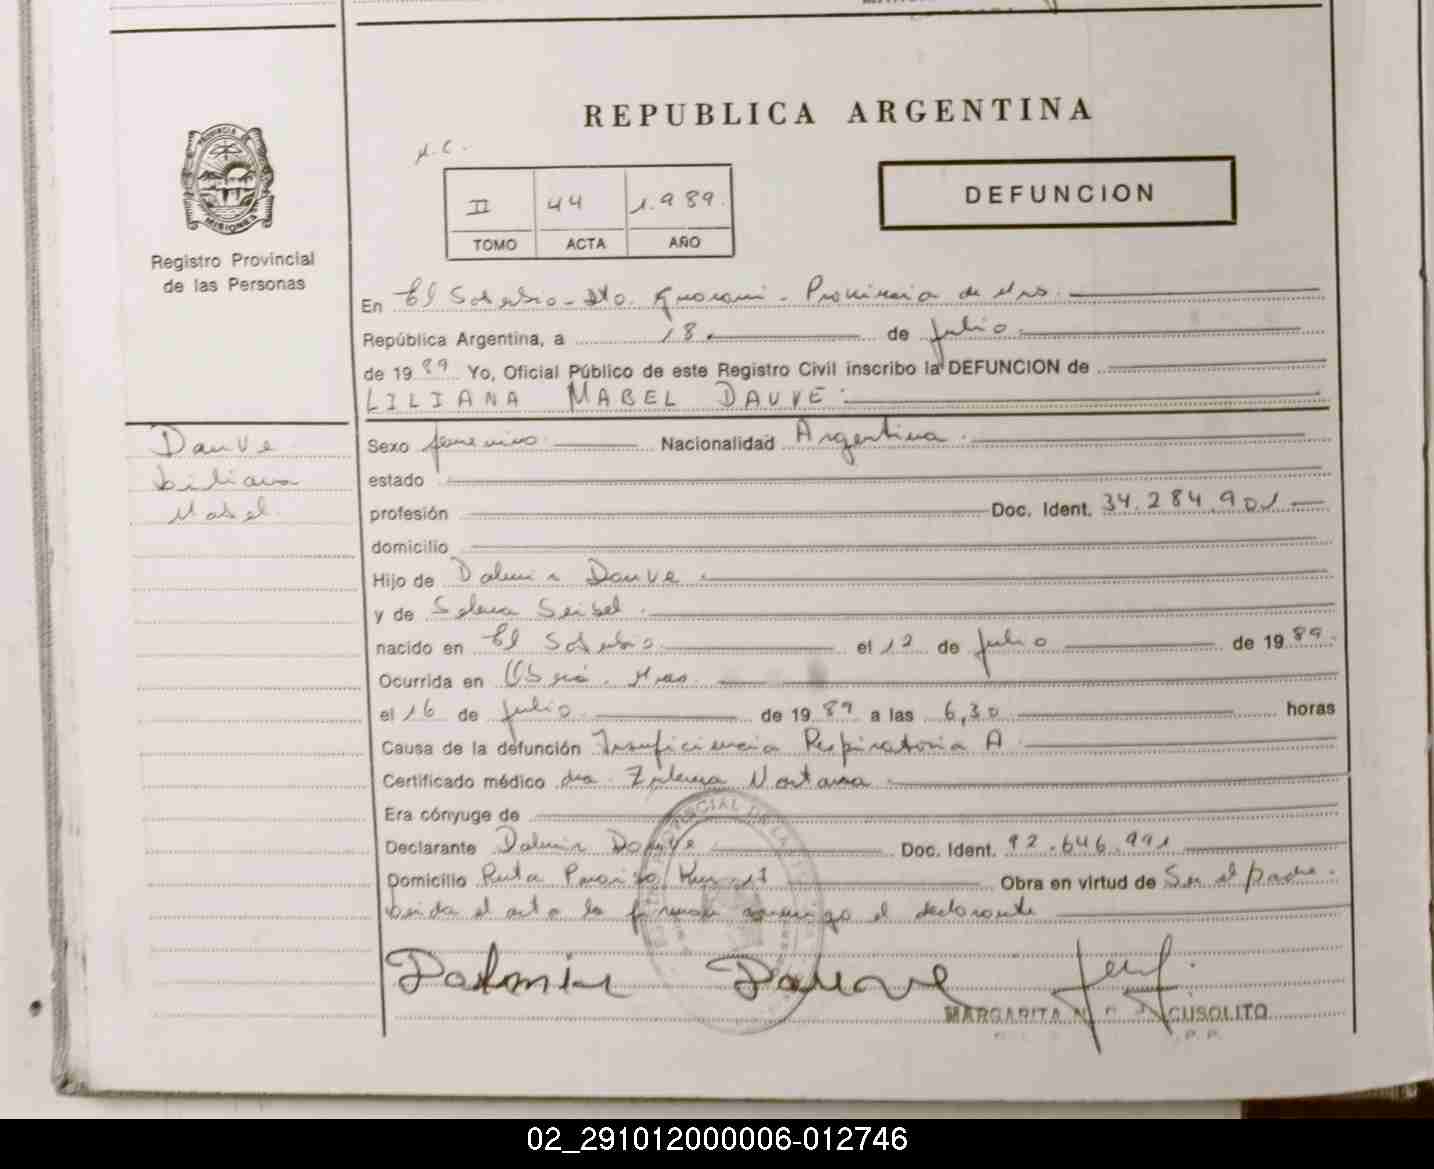 REPUBLICA ARGENTINA
PROVINCIA DE
MISIONES
Registro Provincial
de las Personas
II 44 1.989.
TOMO ACTA AÑO
DEFUNCION
En El Soberbio - Dto. Guarani - Provincia de Mnes.
República Argentina, a 18. de julio.
de 1989 Yo, Oficial Público de este Registro Civil inscribo la DEFUNCION de
LILIANA MABEL DAUVE.
Dauve
Liliana
Mabel
Sexo femenino. Nacionalidad Argentina.
estado
profesión Doc. Ident. 34.284.901
domicilio
Hijo de Dalmir Dauve.
y de Selma Seibel.
nacido en El Soberbio el 12 de julio de 1989.
Ocurrida en Oberá. Mnes.
el 16 de julio de 1989 a las 6,30 horas
Causa de la defunción Insuficiencia Respiratoria A
Certificado médico dra. Zulema
Era cónyuge de
Declarante Dalmir Dauve Doc. Ident. 92.646.991
Domicilio Ruta Obra en virtud de Ser el padre.
Leida el acta la firman conmigo el declarante
Dalmir Dauve
MARGARITA CUSOLITO
02_291012000006-012746